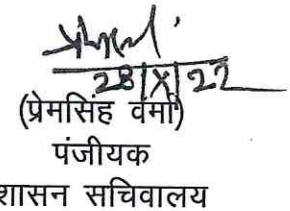 28/X/22
(प्रेमसिंह वर्मा)
पंजीयक
शासन सचिवालय